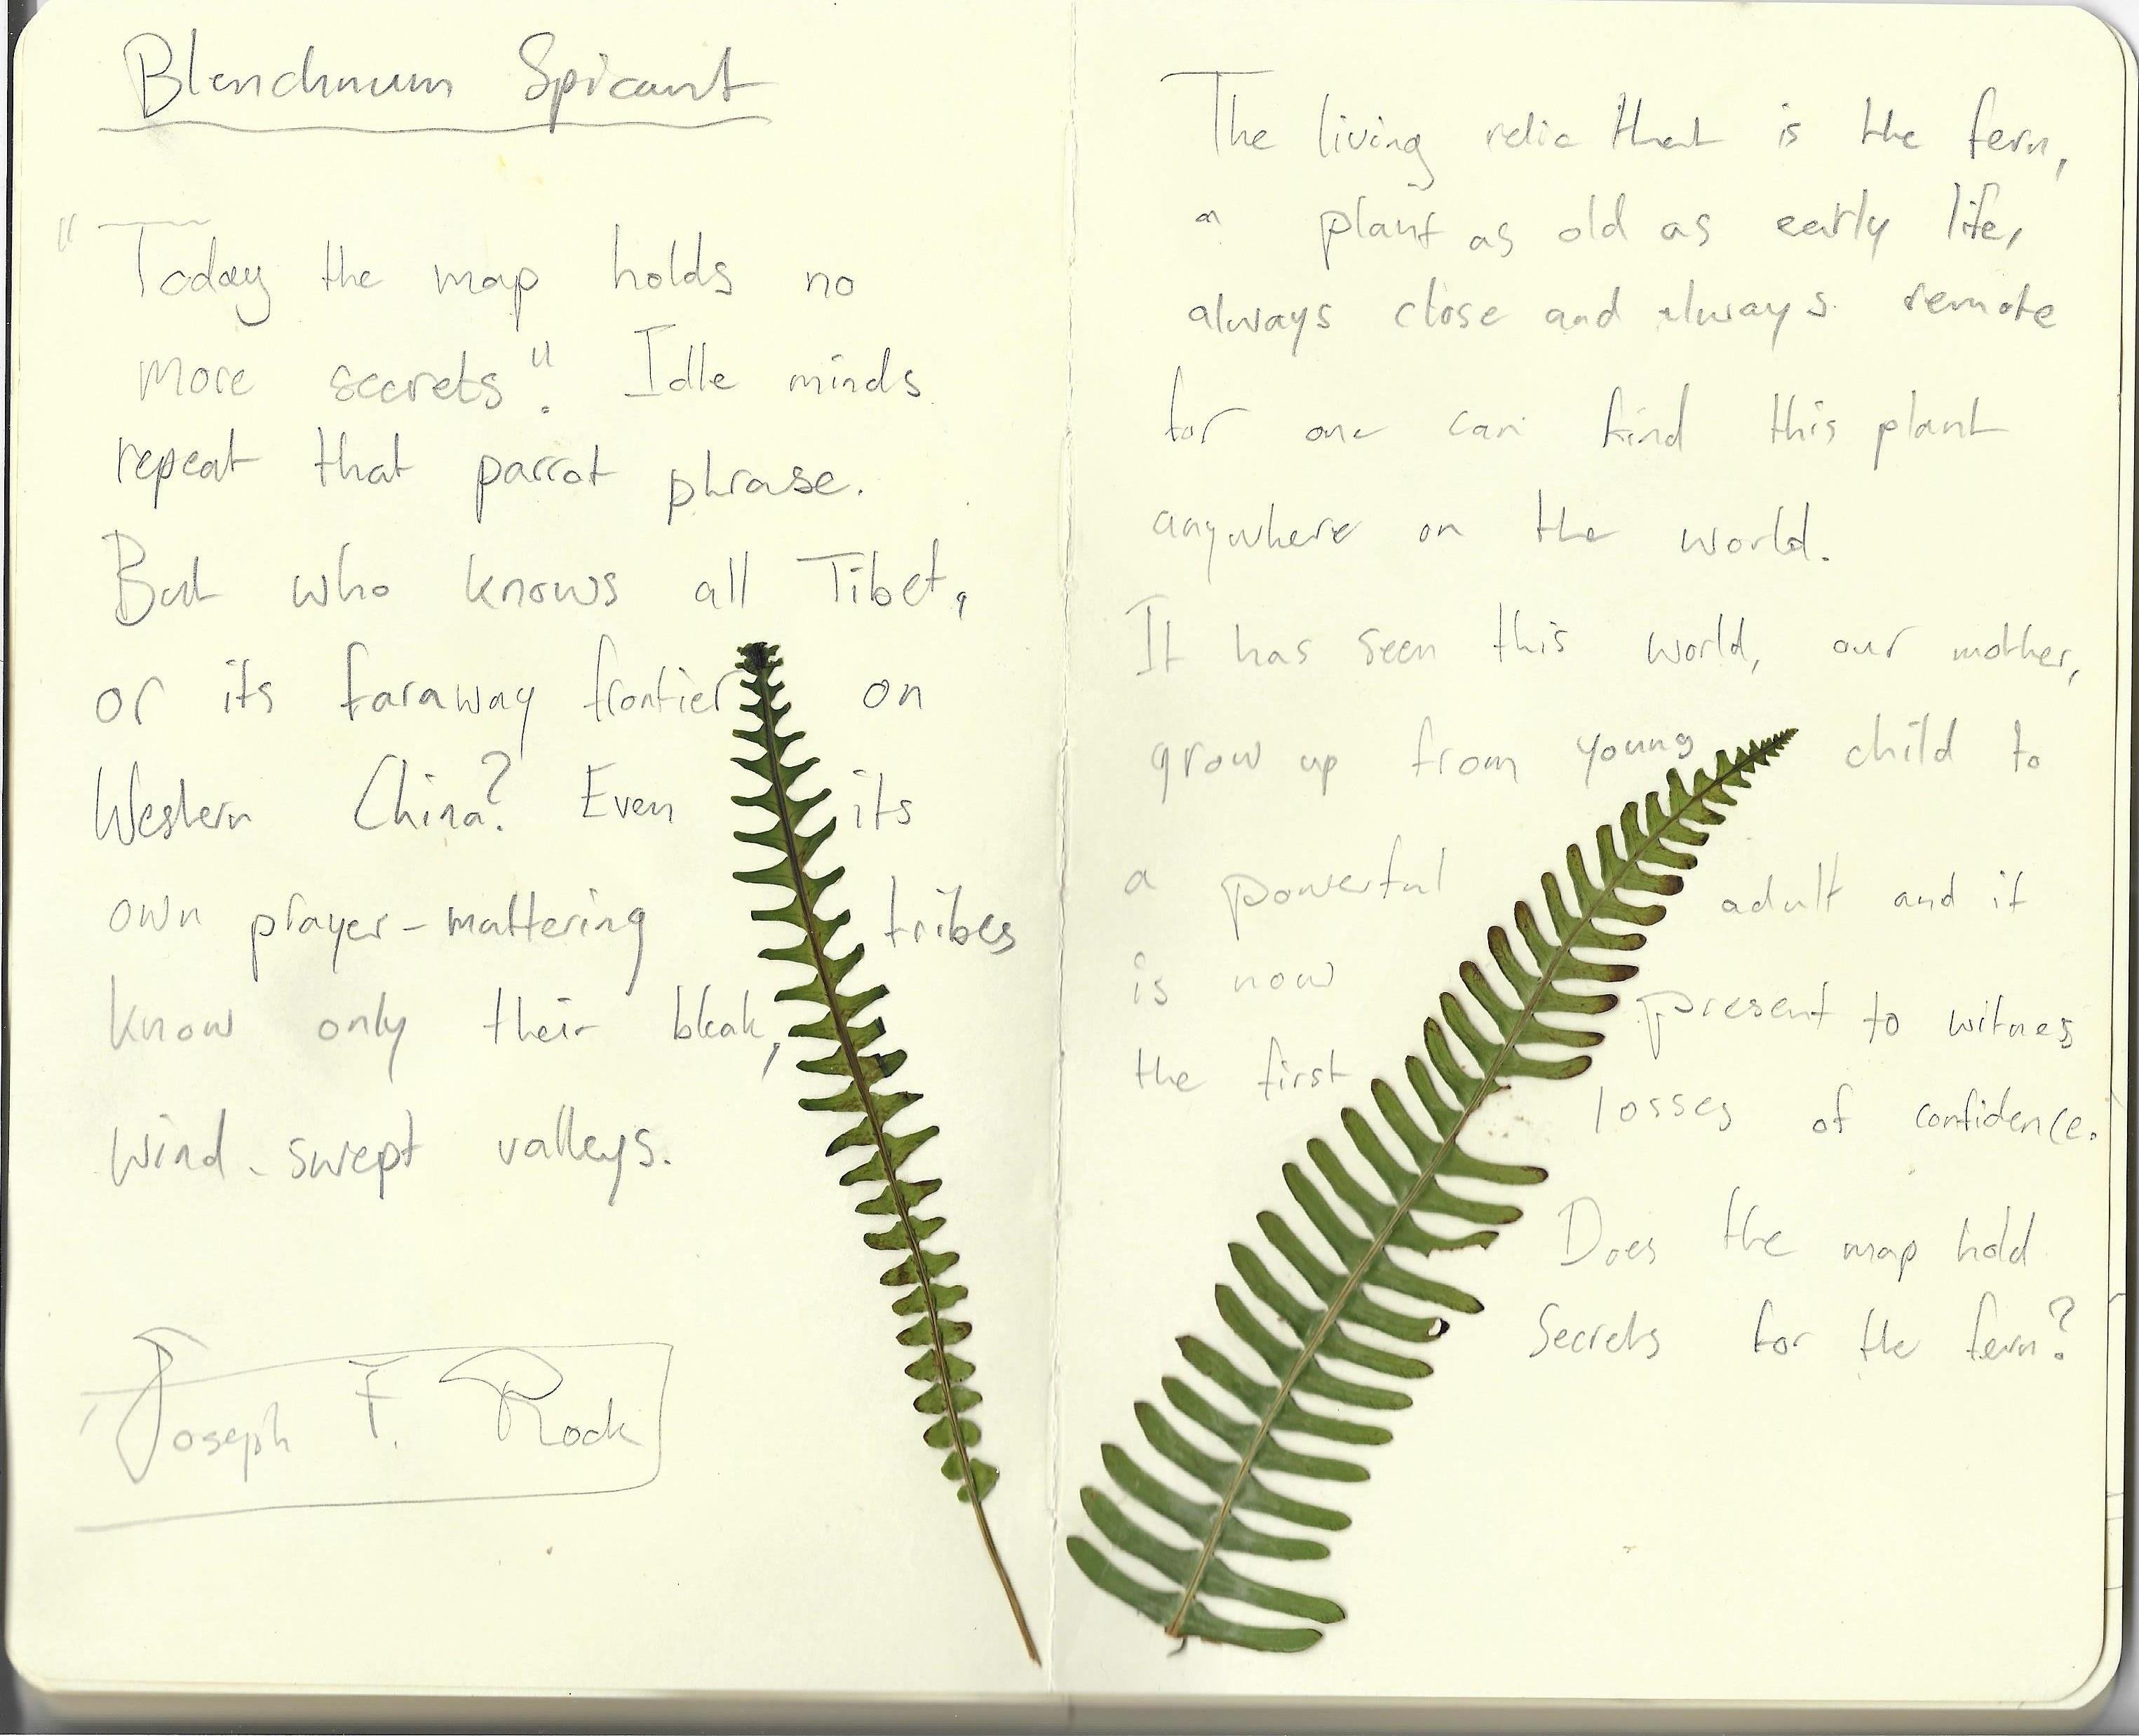 Blenchnum Spicant
"Today the map holds no
more secrets". Idle minds
repeat that parrot phrase.
But who knows all Tibet,
or its faraway frontier on
Western China? Even its
own prayer-mattering tribes
know only their bleak,
wind-swept valleys.
Joseph F. Rock
The living relic that is the fern,
a plant as old as early life,
always close and always remote
for one can find this plant
anywhere on the world.
It has seen this world, our mother,
grow up from young child to
a powerful adult and it
is now present to witness
the first losses of confidence.
Does the map hold
Secrets for the fern?